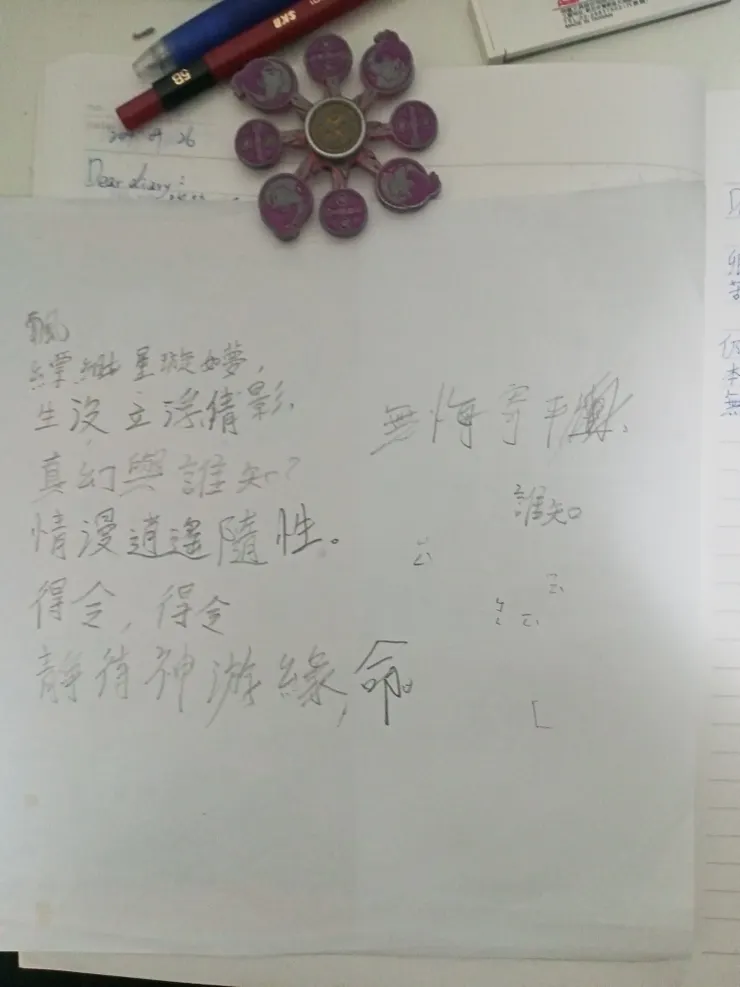 SKB
6B
26
Dear diary:
飄
縹緲星璇如夢,
生沒立浮倩影.
真幻與誰知?
情漫逍遙隨性。
得令,得令
靜待神游緣,命。
無悔寄平
誰知